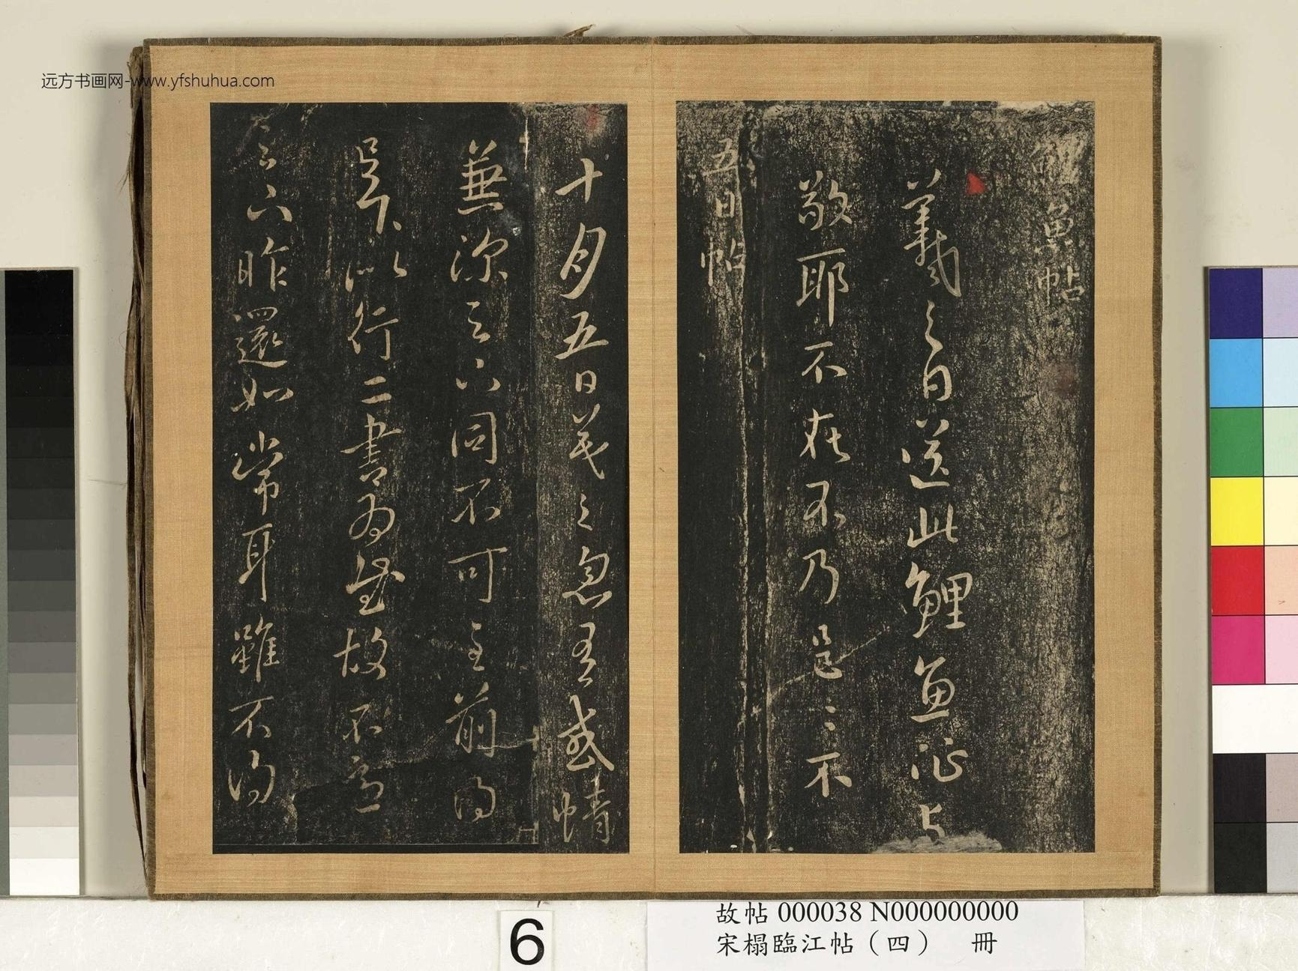 远方书画网-www.yfshuhua.com
鯉魚帖
羲之曰送此鯉魚征与
敬耶不在不乃是々不
五日帖
十月五日羲之忽有感情
兼深云亦同不可言前得
吳下以行二書為慰故不
云亦昨還如常耳雖不得
6
故帖 000038 N000000000
宋榻臨江帖（四） 冊